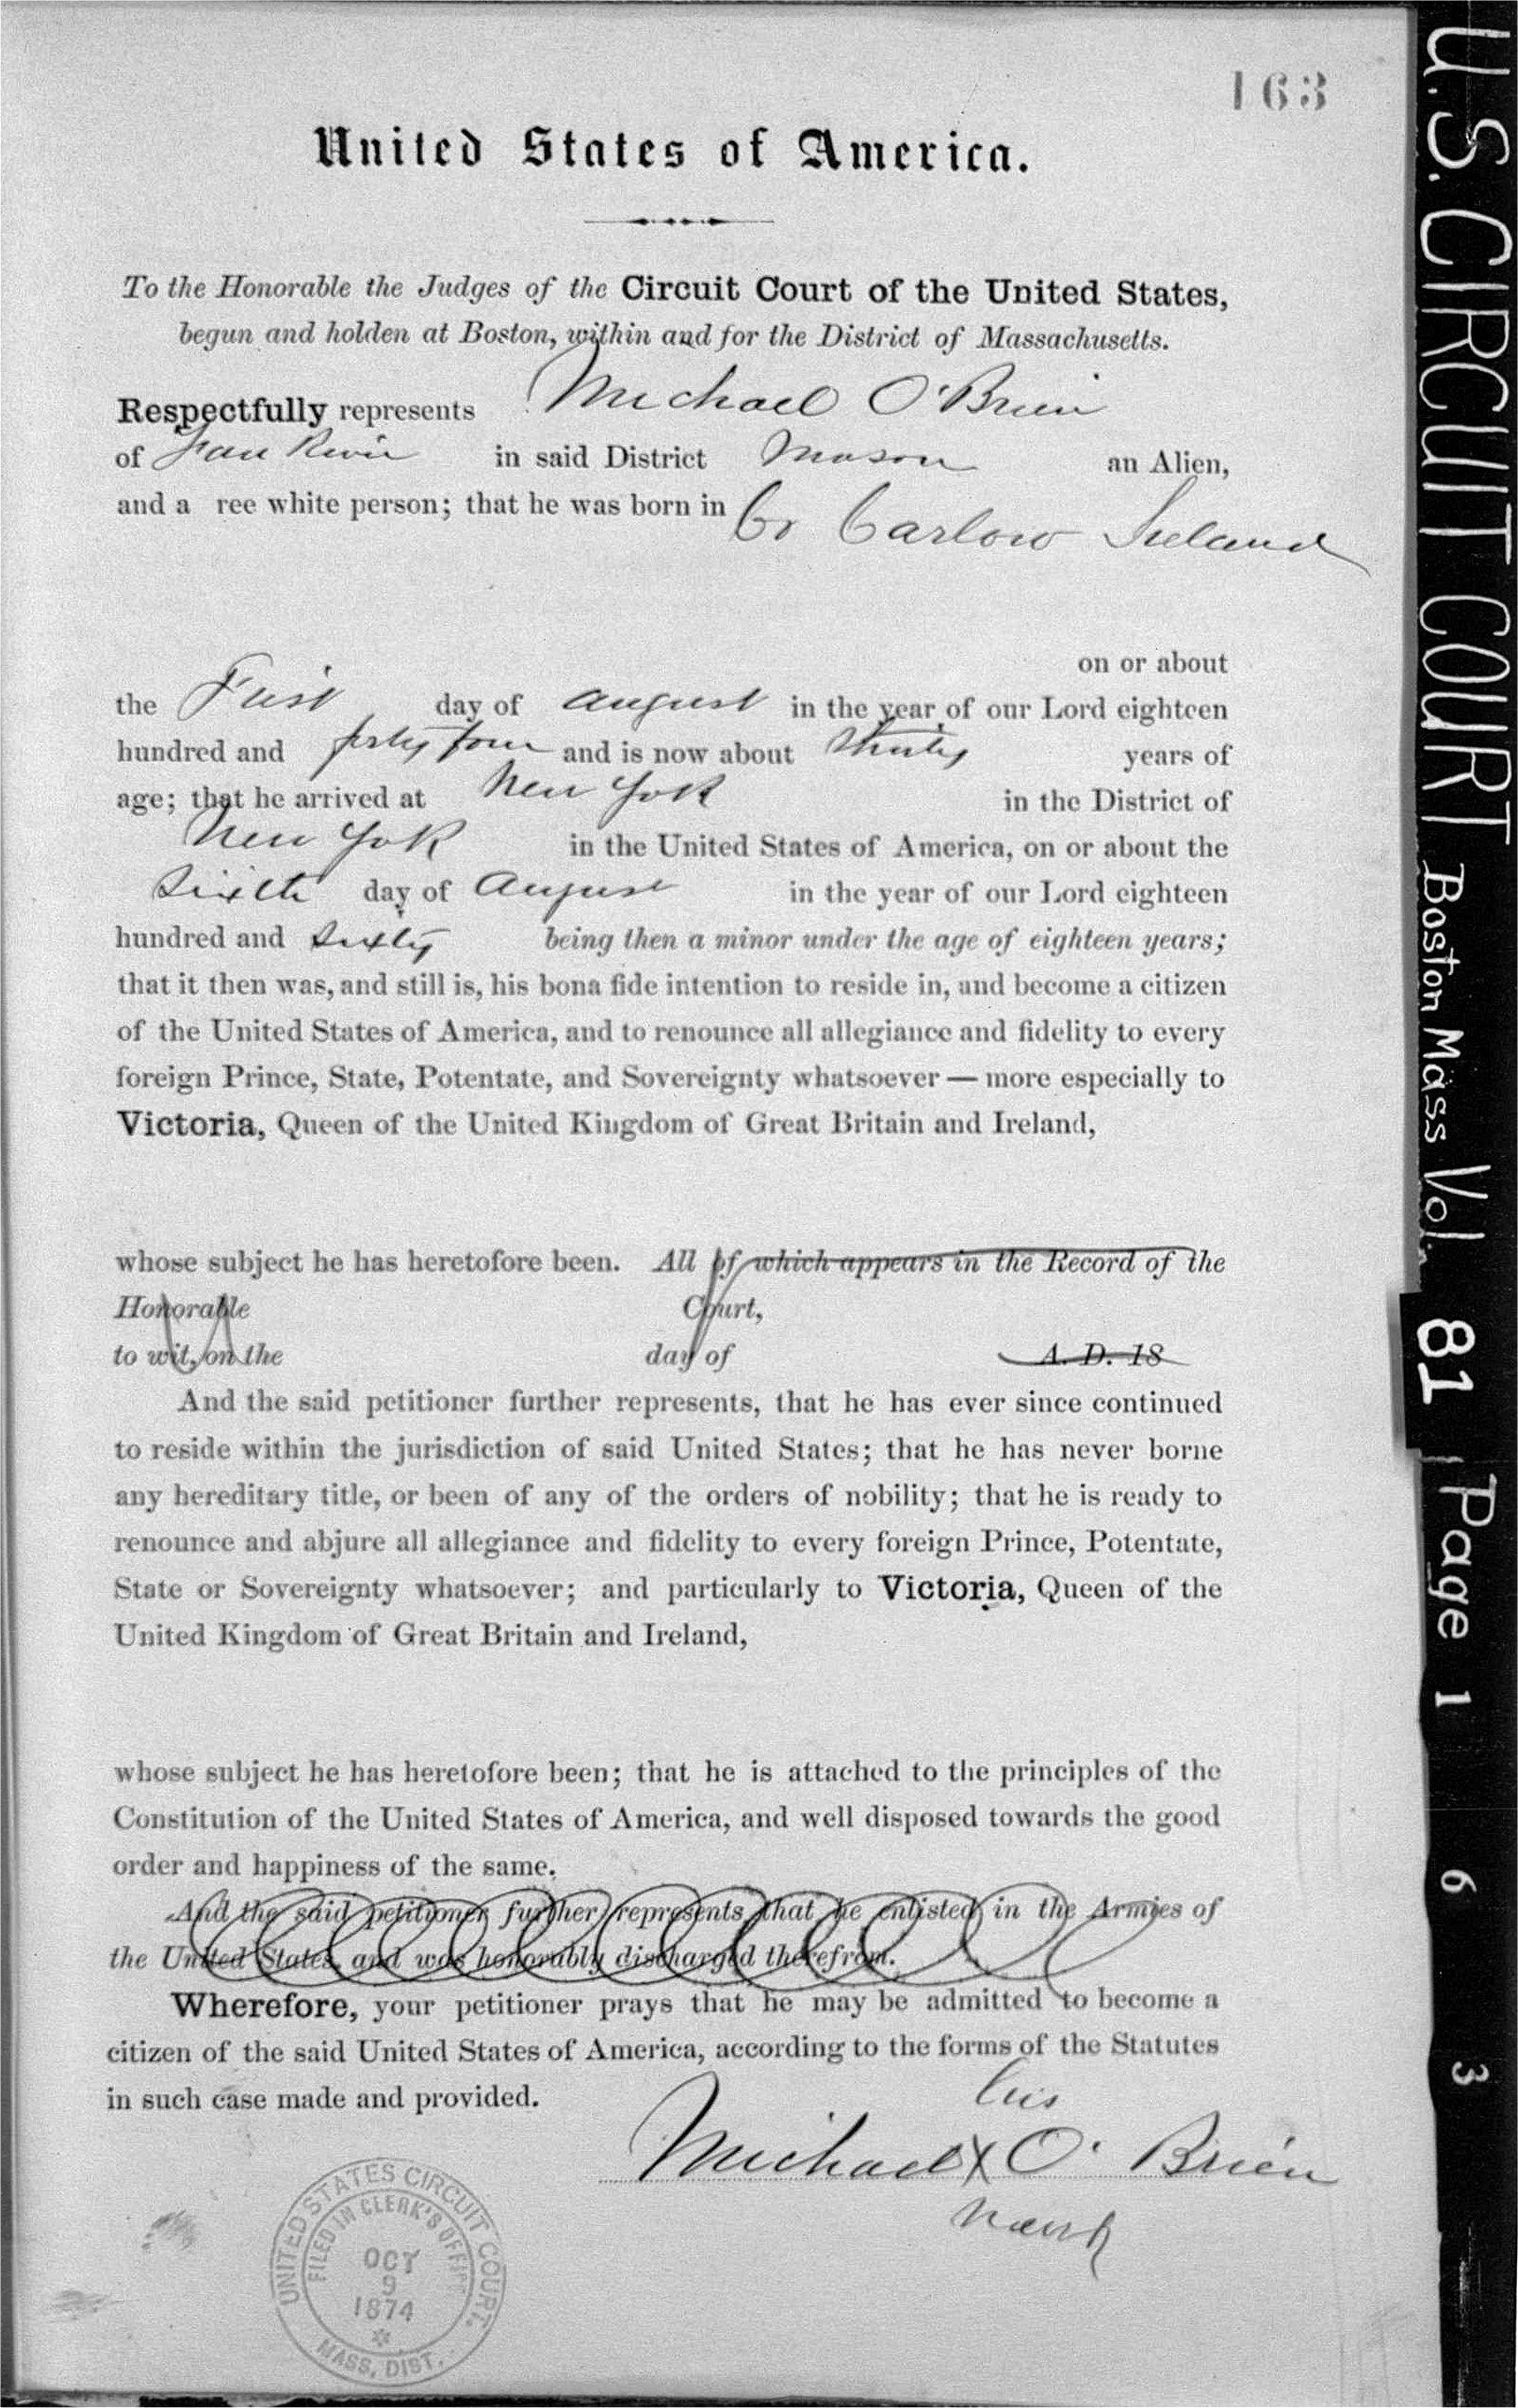 163
United States of America.
To the Honorable the Judges of the Circuit Court of the United States,
begun and holden at Boston, within and for the District of Massachusetts.
Respectfully represents Michael O'Brien
of Fall River in said District Mason an Alien,
and a ree white person; that he was born in Co Carlow Ireland
on or about
the First day of August in the year of our Lord eighteen
hundred and forty four and is now about thirty years of
age; that he arrived at New York in the District of
New York in the United States of America, on or about the
Sixth day of August in the year of our Lord eighteen
hundred and sixty being then a minor under the age of eighteen years;
that it then was, and still is, his bona fide intention to reside in, and become a citizen
of the United States of America, and to renounce all allegiance and fidelity to every
foreign Prince, State, Potentate, and Sovereignty whatsoever — more especially to
Victoria, Queen of the United Kingdom of Great Britain and Ireland,
whose subject he has heretofore been. All of which appears in the Record of the
Honorable Court,
to wit, on the day of A. D. 18
And the said petitioner further represents, that he has ever since continued
to reside within the jurisdiction of said United States; that he has never borne
any hereditary title, or been of any of the orders of nobility; that he is ready to
renounce and abjure all allegiance and fidelity to every foreign Prince, Potentate,
State or Sovereignty whatsoever; and particularly to Victoria, Queen of the
United Kingdom of Great Britain and Ireland,
whose subject he has heretofore been; that he is attached to the principles of the
Constitution of the United States of America, and well disposed towards the good
order and happiness of the same.
And the said petitioner further represents that he enlisted in the Armies of
the United States, and was honorably discharged therefrom.
Wherefore, your petitioner prays that he may be admitted to become a
citizen of the said United States of America, according to the forms of the Statutes
in such case made and provided.
his
Michael X O'Brien
mark
UNITED STATES CIRCUIT COURT.
FILED IN CLERK'S OFFICE
OCT
9
1874
MASS. DIST.
U.S. CIRCUIT COURT Boston Mass Vol. 81 Page 1 6 3